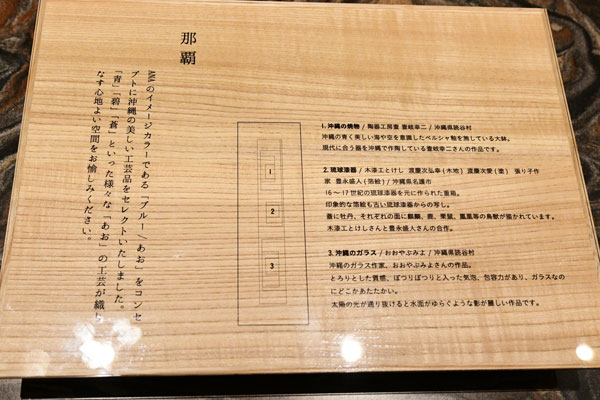 那覇
ANAのイメージカラーである「ブルー/あお」をコンセ
プトに沖縄の美しい工芸品をセレクトいたしました。
「青」「碧」「蒼」といった様々な「あお」の工芸が織り
なす心地よい空間をお愉しみください。
1
2
3
1. 沖縄の焼物 / 陶器工房壹 壹岐幸二 / 沖縄県読谷村
沖縄の青く美しい海や空を意識したペルシャ釉を施している大鉢。
現代に合う器を沖縄で作陶している壹岐幸二さんの作品です。
2. 琉球漆器 / 木漆工とけし 渡慶次弘幸(木地) 渡慶次愛(塗) 張り子作
家 豊永盛人(箔絵) / 沖縄県名護市
16〜17世紀の琉球漆器を元に作られた重箱。
印象的な箔絵も古い琉球漆器からの写し。
蓋に牡丹、それぞれの面に麒麟、鹿、栗鼠、鳳凰等の鳥獣が描かれています。
木漆工とけしさんと豊永盛人さんの合作。
3. 沖縄のガラス / おおやぶみよ / 沖縄県読谷村
沖縄のガラス作家、おおやぶみよさんの作品。
とろりとした質感、ぽつりぽつりと入った気泡、包容力があり、ガラスなの
にどこかあたたかい。
太陽の光が通り抜けると水面がゆらぐような影が麗しい作品です。